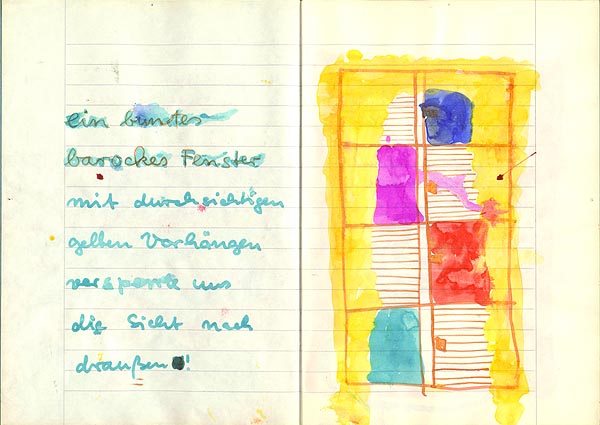 ein buntes
barockes Fenster
mit durchsichtigen
gelben Vorhängen
versperrte uns
die Sicht nach
draußen!